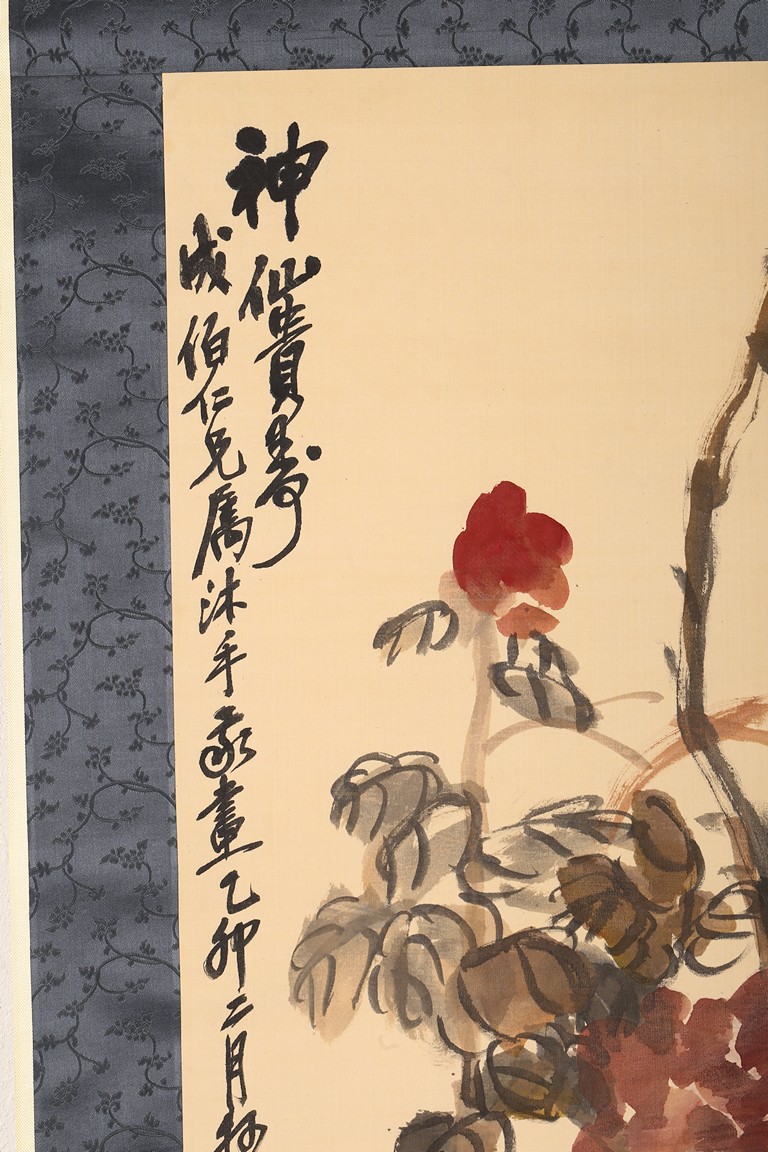 神仙貴壽
成伯仁兄屬沐手畫乙卯二月